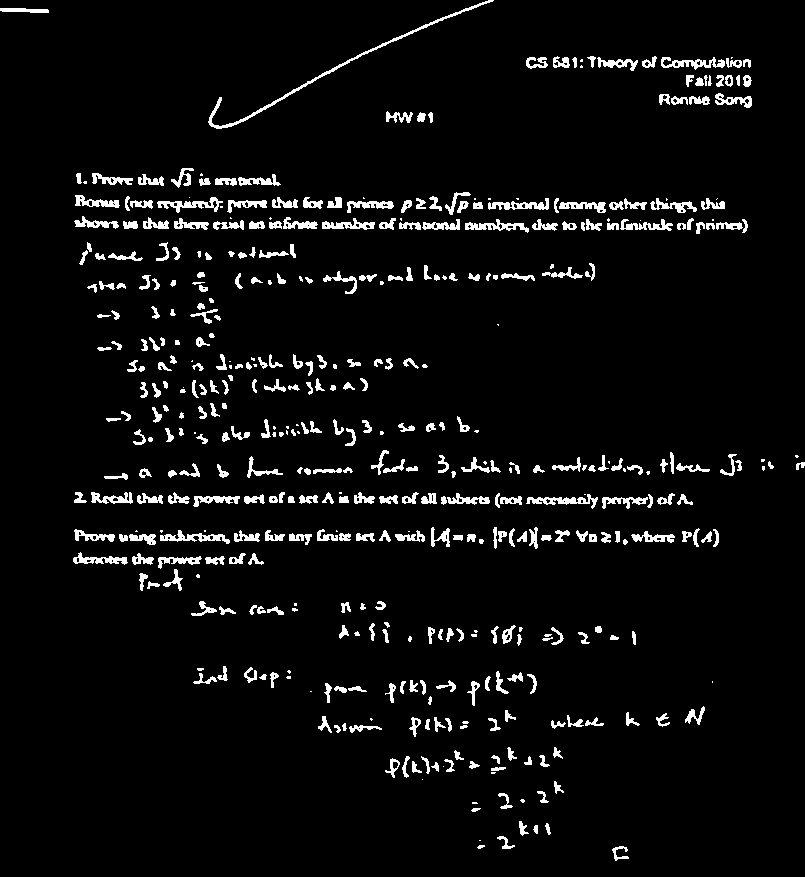 CS 581: Theory of Computation
Fall 2019
Ronnie Song
HW #1
1. Prove that √3 is irrational.
Bonus (not required): prove that for all primes p ≥ 2, √p is irrational (among other things, this
shows us that there exist an infinite number of irrational numbers, due to the infinitude of primes)
Assume √3 is rational
then √3 = a/b (a, b is integer, and have no common factor)
→ 3 = a²/b²
→ 3b² = a²
So a² is divisible by 3, so as a.
3b² = (3k)² (where 3k = a)
→ b² = 3k²
So b² is also divisible by 3, so as b.
→ a and b have common factor 3, which is a contradiction, Hence √3 is
2. Recall that the power set of a set A is the set of all subsets (not necessarily proper) of A.
Prove using induction, that for any finite set A with |A| = n, |P(A)| = 2ⁿ ∀n ≥ 1, where P(A)
denotes the power set of A.
Proof:
Base case: n = 0
A = { }, P(A) = {Ø} => 2⁰ = 1
Ind Step: prove p(k) → p(k+1)
Assume P(k) = 2^k where k ∈ N
P(k)+2^k = 2^k + 2^k
= 2 · 2^k
= 2^(k+1)
□